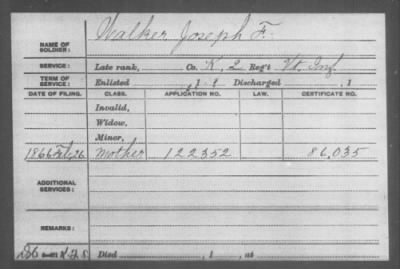 NAME OF SOLDIER: Walker Joseph F.
SERVICE: Late rank, Co. K, 2 Reg't Vt. Inf
TERM OF SERVICE: Enlisted , 1 Discharged , 1
DATE OF FILING. CLASS. APPLICATION NO. LAW. CERTIFICATE NO.
Invalid,
Widow,
Minor,
1866 Feb. 26 Mother 122352 86,035
ADDITIONAL SERVICES:
REMARKS:
Died , 1 , at